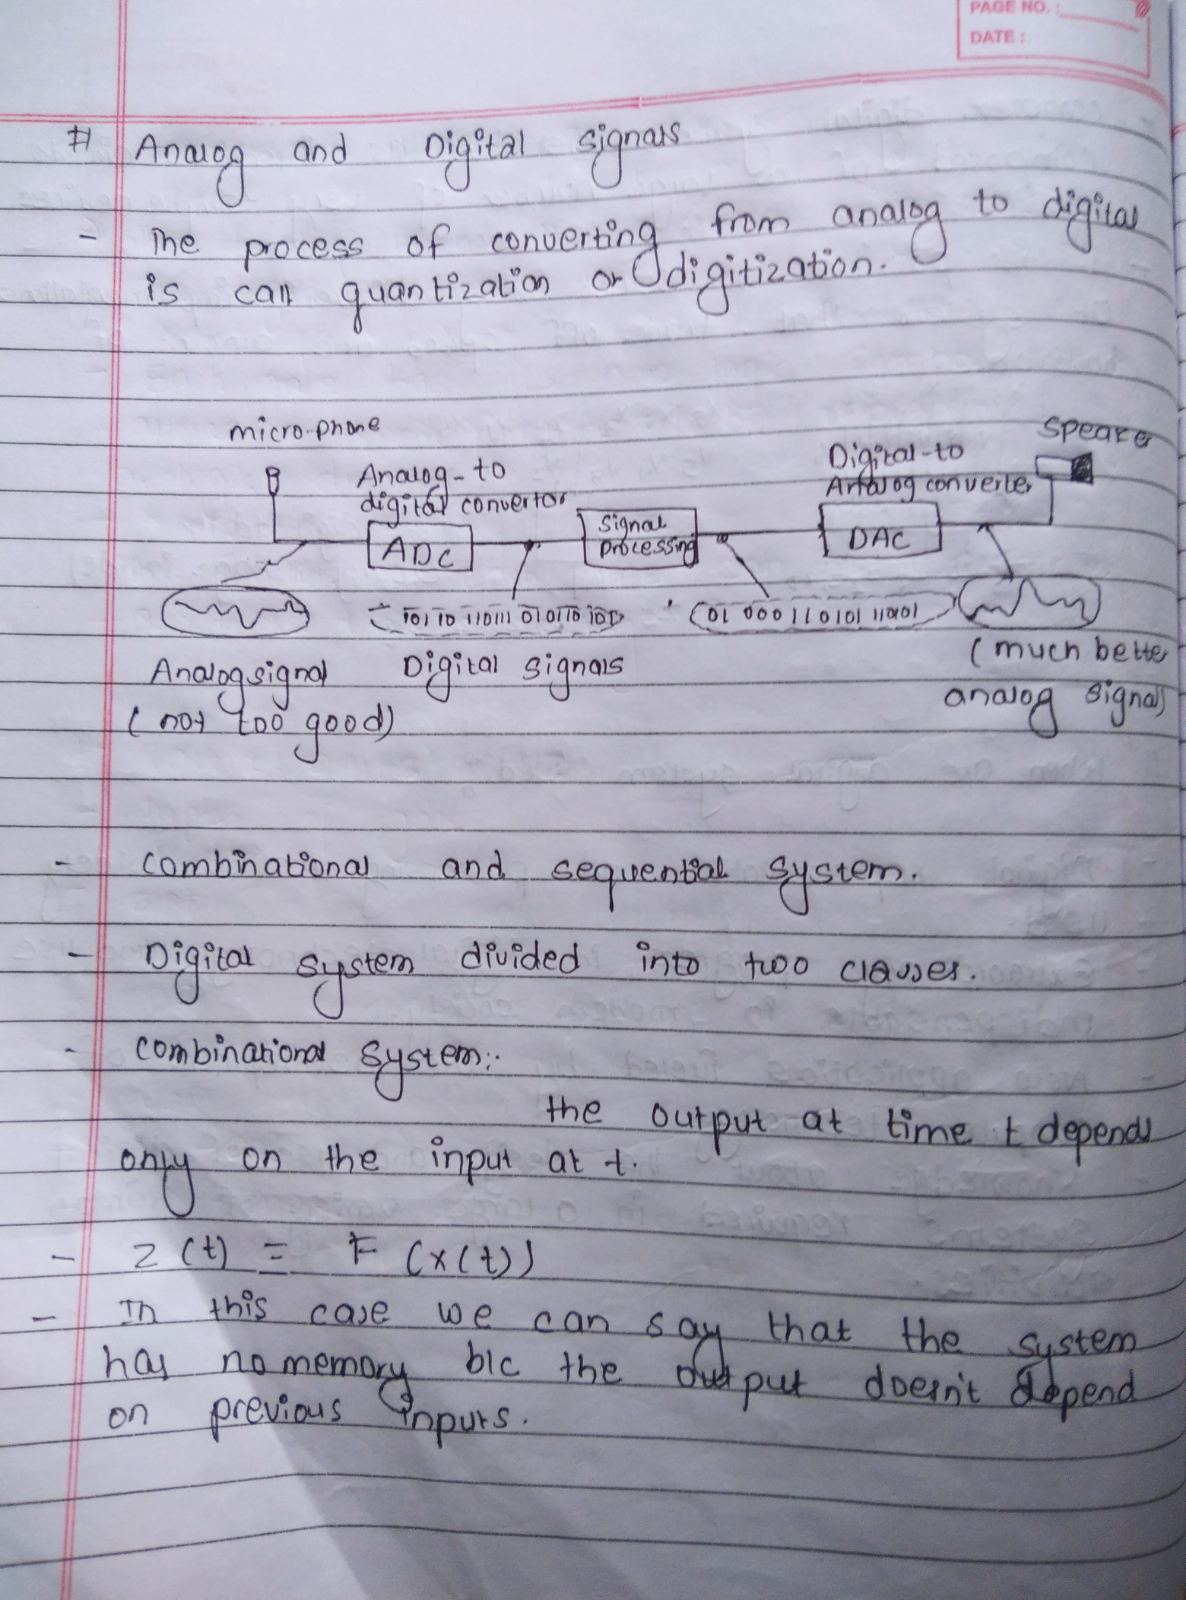 PAGE NO. :
DATE :
# Analog and Digital signals
- The process of converting from analog to digital
is call quantization or digitization.
micro-phone
speaker
Analog-to
digital convertor
Digital-to
Analog converter
ADC
signal
processing
DAC
01 000110101 11001
Analog signal
(not too good)
Digital signals
(much better
analog signal)
- combinational and sequential system.
- Digital system divided into two classes.
- combinational system:-
the output at time t depends
only on the input at t.
- z(t) = F (x(t))
- In this case we can say that the system
has no memory b/c the output doesn't depend
on previous inputs.